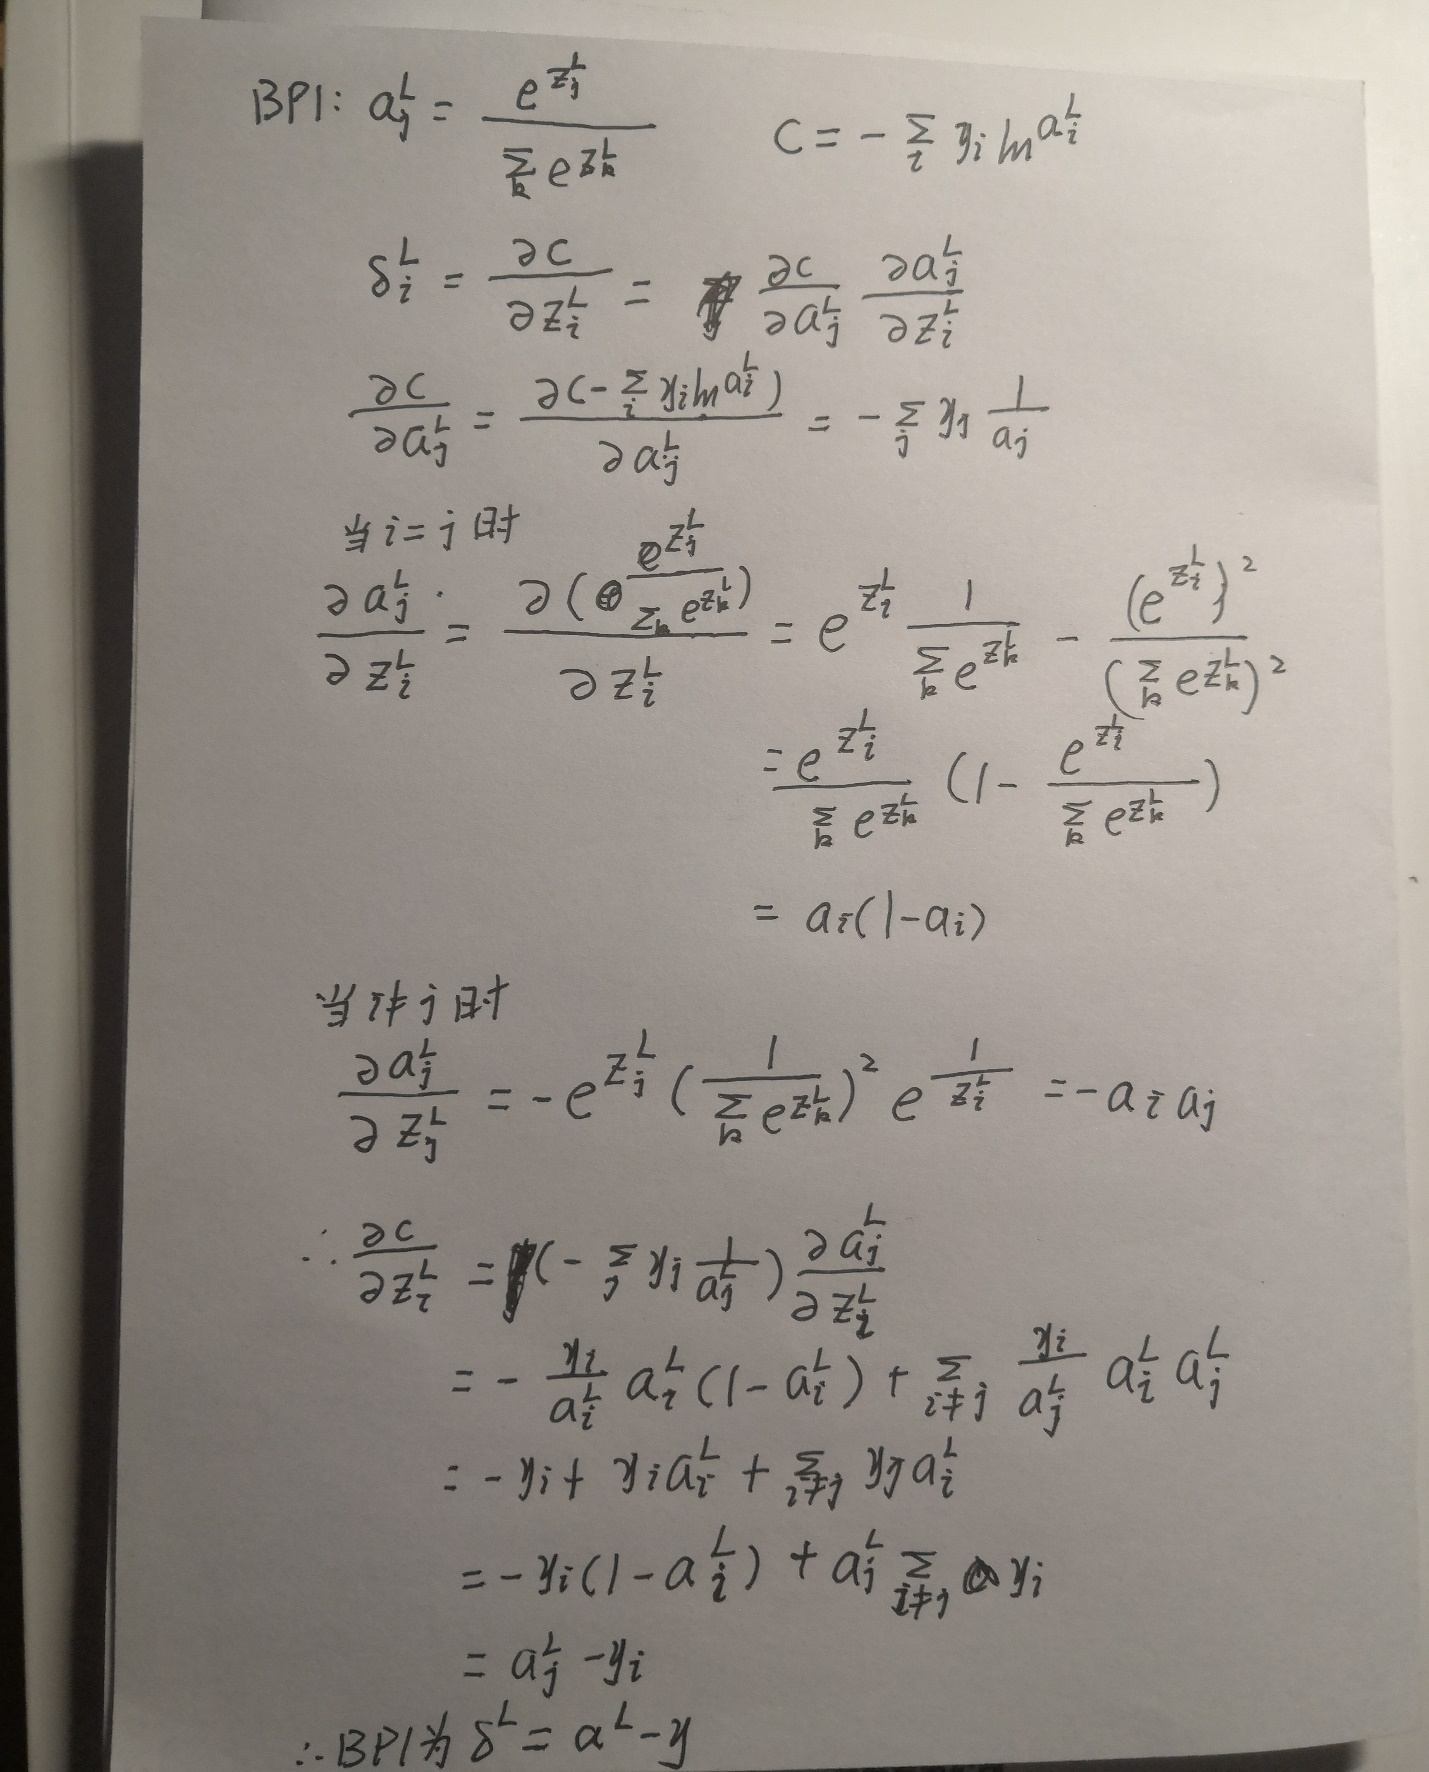 BP1: a_j^L = e^{z_j^L} / Σ_k e^{z_k^L}    C = - Σ_i y_i ln^{a_i^L}
δ_i^L = ∂C/∂z_i^L = ∂C/∂a_j^L ∂a_j^L/∂z_i^L
∂C/∂a_j^L = ∂(-Σ_i y_i ln^{a_i^L})/∂a_j^L = -Σ_j y_j 1/a_j
当 i = j 时
∂a_j^L/∂z_i^L = ∂(e^{z_j^L}/Σ_k e^{z_k^L})/∂z_i^L = e^{z_i^L} 1/Σ_k e^{z_k^L} - (e^{z_i^L})^2/(Σ_k e^{z_k^L})^2
= e^{z_i^L}/Σ_k e^{z_k^L} (1 - e^{z_i^L}/Σ_k e^{z_k^L})
= a_i(1-a_i)
当 i ≠ j 时
∂a_j^L/∂z_j^L = -e^{z_j^L} (1/Σ_k e^{z_k^L})^2 e^{1/z_i^L} = -a_i a_j
∴ ∂C/∂z_i^L = (-Σ_j y_j 1/a_j^L) ∂a_j^L/∂z_i^L
= - y_i/a_i^L a_i^L (1-a_i^L) + Σ_{i≠j} y_i/a_j^L a_i^L a_j^L
= -y_i + y_i a_i^L + Σ_{i≠j} y_j a_i^L
= -y_i(1-a_i^L) + a_j^L Σ_{i≠j} y_i
= a_j^L - y_i
∴ BP1为 δ^L = a^L - y